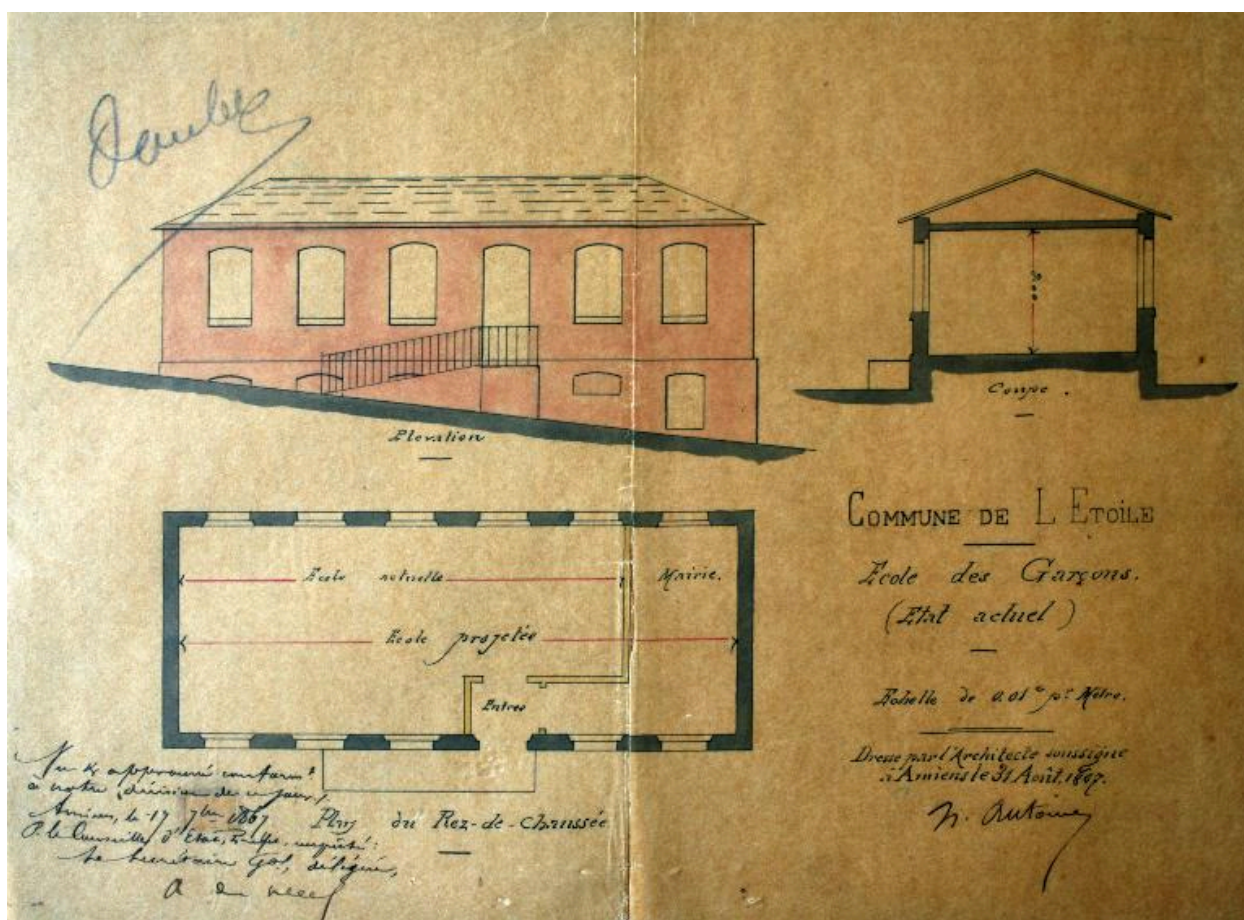 Elevation
Coupe.
COMMUNE DE L ETOILE
Ecole des Garçons.
(Etat actuel)
Echelle de 0.01ᶜ pʳ Mètre.
Dressé par l'Architecte soussigné
à Amiens le 31 Août 1867.
Ecole actuelle
Mairie.
Ecole projetée
Entrée
Plan du Rez-de-Chaussée
Vu & approuvé conformᵗ
à notre décision de ce jour,
Amiens, le 17 7bre 1867
P. le Conseiller d'Etat, Préfet, empêché:
Le Secrétaire Gal, délégué,